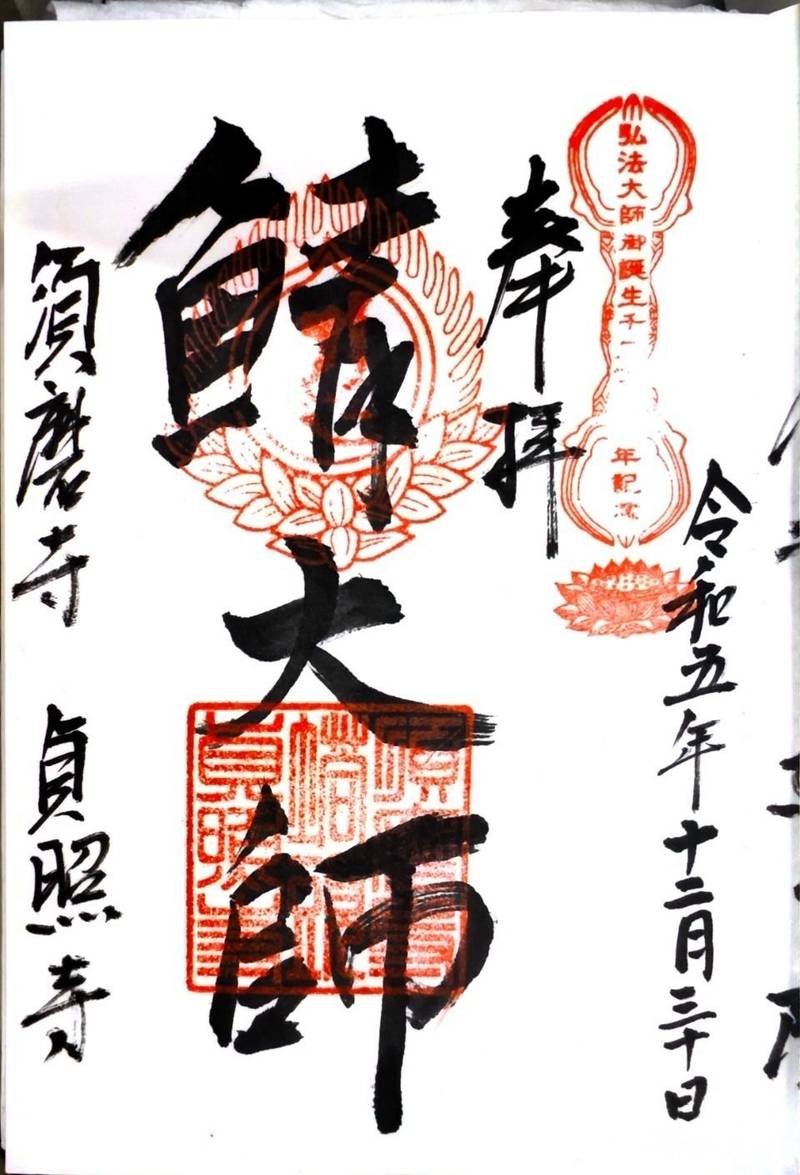 令和五年十二月三十日
弘法大師御誕生千
年記念
奉拝
鯖大師
須磨寺 貞照寺